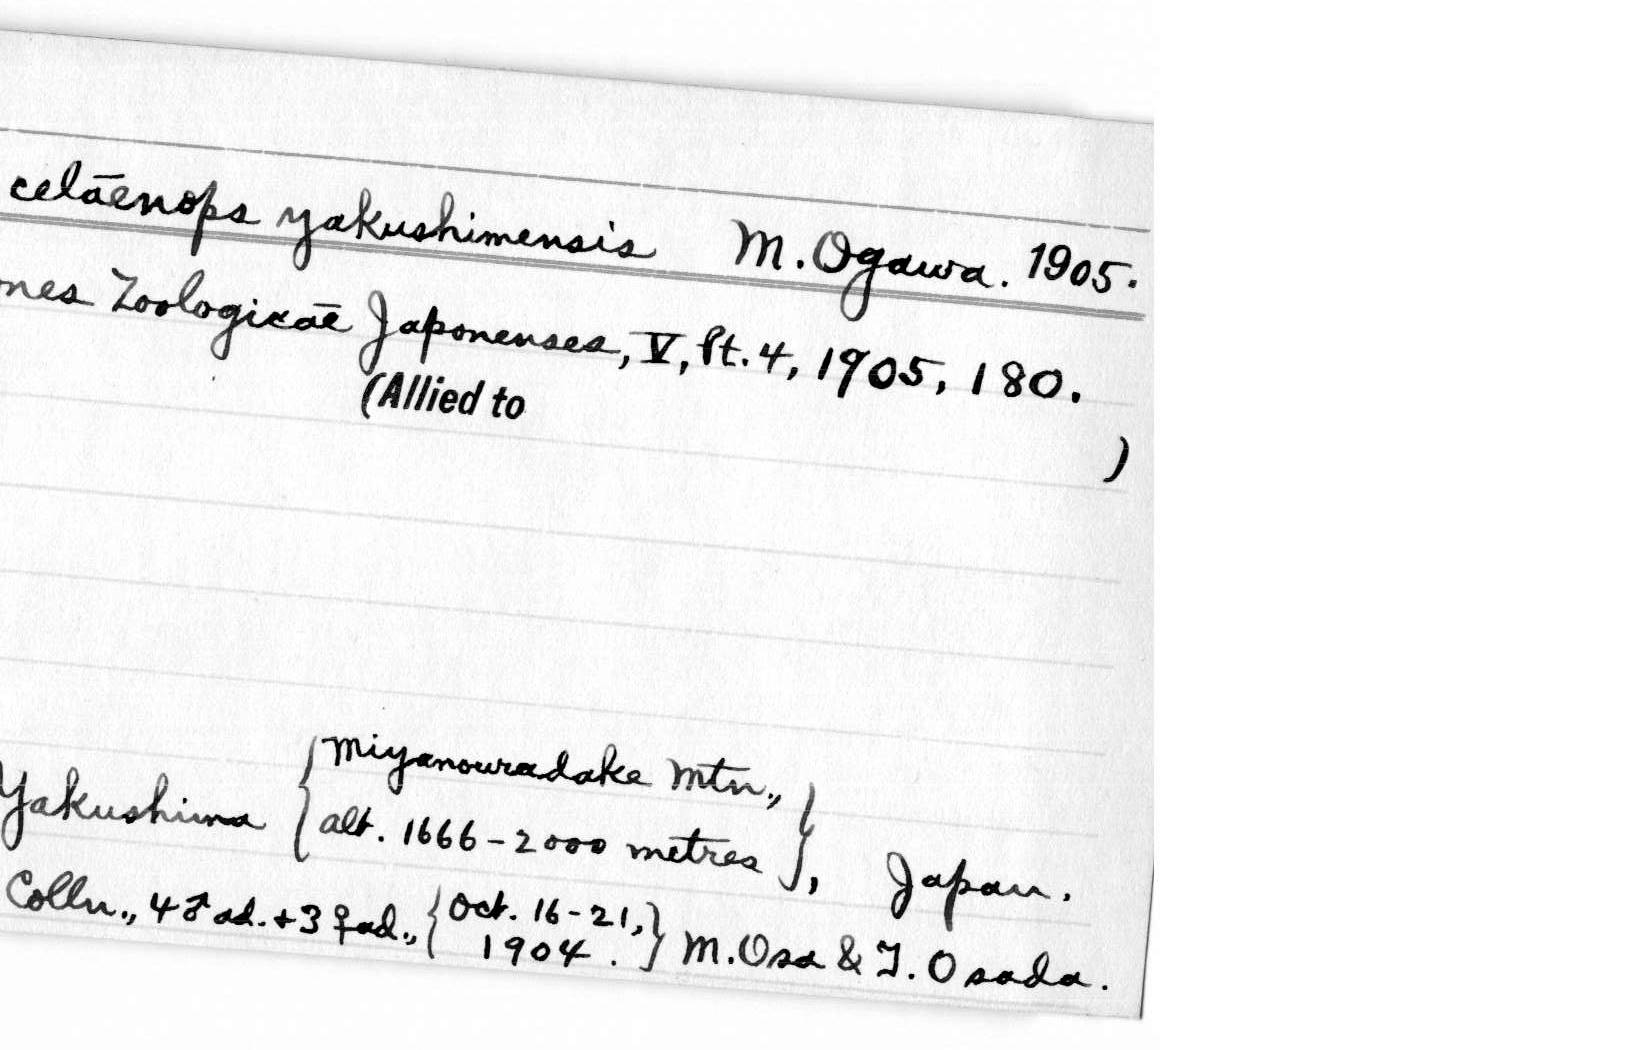 celāenops yakushimensis M. Ogawa. 1905.
nes Zoologicāe Japonenses, V, Pt. 4, 1905, 180.
(Allied to
)
Miyanouradake Mtn.,
Yakushima { alt. 1666-2000 metres }, Japan.
Colln., 4♂ad. + 3♀ad., { Oct. 16-21, 1904. } M. Osa & T. Osada.